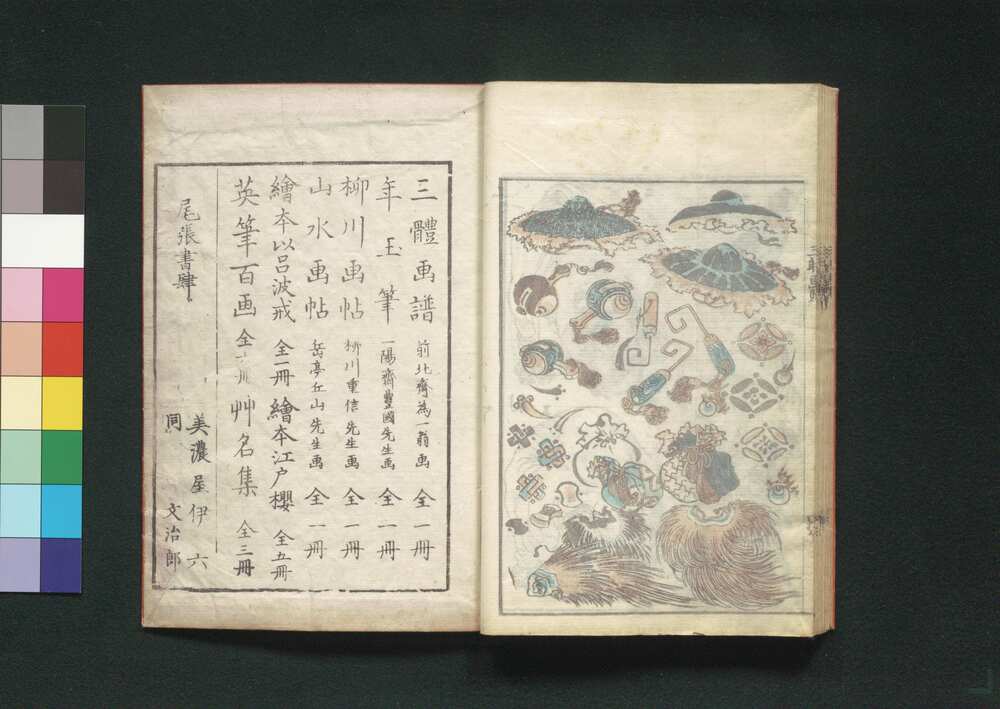 三體画譜 前北齋為一翁画 全一冊
年玉筆 一陽齋豊國先生画 全一冊
柳川画帖 柳川重信先生画 全一冊
山水画帖 岳亭丘山先生画 全一冊
繪本以呂波戒 全一冊 繪本江戸櫻 全五冊
英筆百画 全 冊 艸名集 全三冊
尾張書肆
美濃屋伊六
同 文治郎